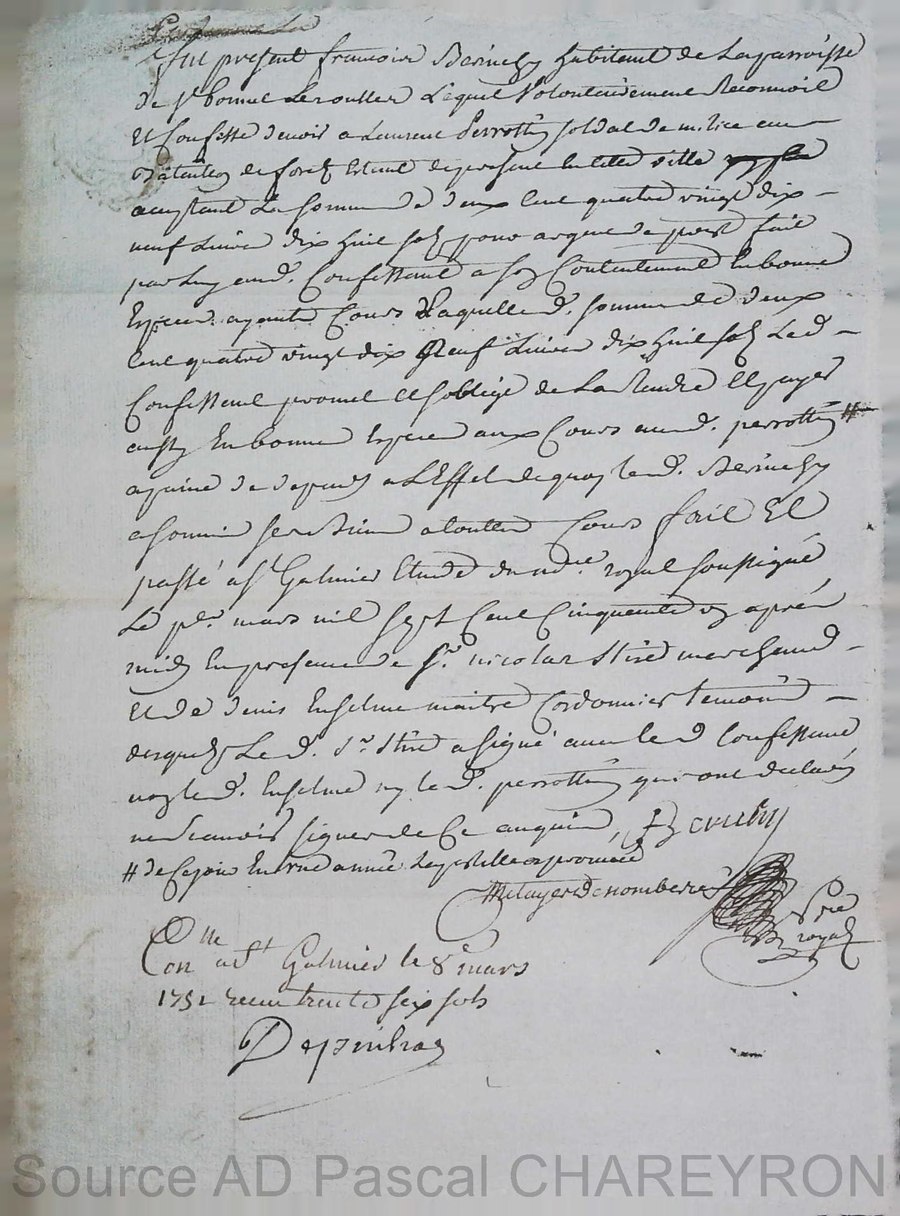 Fut present francois Berinchy habitant de La parroisse
de st bonnet Lesoulles Lequel Volontairement Reconnoit
Et Confesse devoir a Laurent Perrottin soldat de milice au
Batailion de forez Estant de present en cette ville
acceptant La somme de deux Cent quatre vingt dix
neuf Livres dix huit sols pour argent de prest fait
par Luy aud. Confessant a son Contentement En bonnes
Especes ayants Cours Laquelle d. somme de deux
Cent quatre vingt dix Neuf Livres dix huit sols Led
Confessant promet et soblige de La Rendre Et payer
aussy En bonnes Especes aux Cours aud. perrottin #
a peine de depends a L'Effet de quoy led. Berinchy
a soumis ses Biens a touttes Cours fait Et
passé a st Galmier Etude du nore royal soussigné
Le per mars mil sept Cent Cinquante un après
midy En presence de sr nicolas Stire marchand
Et de denis Enselme maitre Cordonnier temoins
desquels Le d. sr Stire a signé avec le d Confessant
non led. Enselme ny le d. perrottin qui ont declarés
ne scavoir signer de Ce enquis,
# de Ce jour En une année
Metayer Denombere
nre royal
Contlle a st Galmier le 8e mars
1751 recu trente six sols
Source AD Pascal CHAREYRON